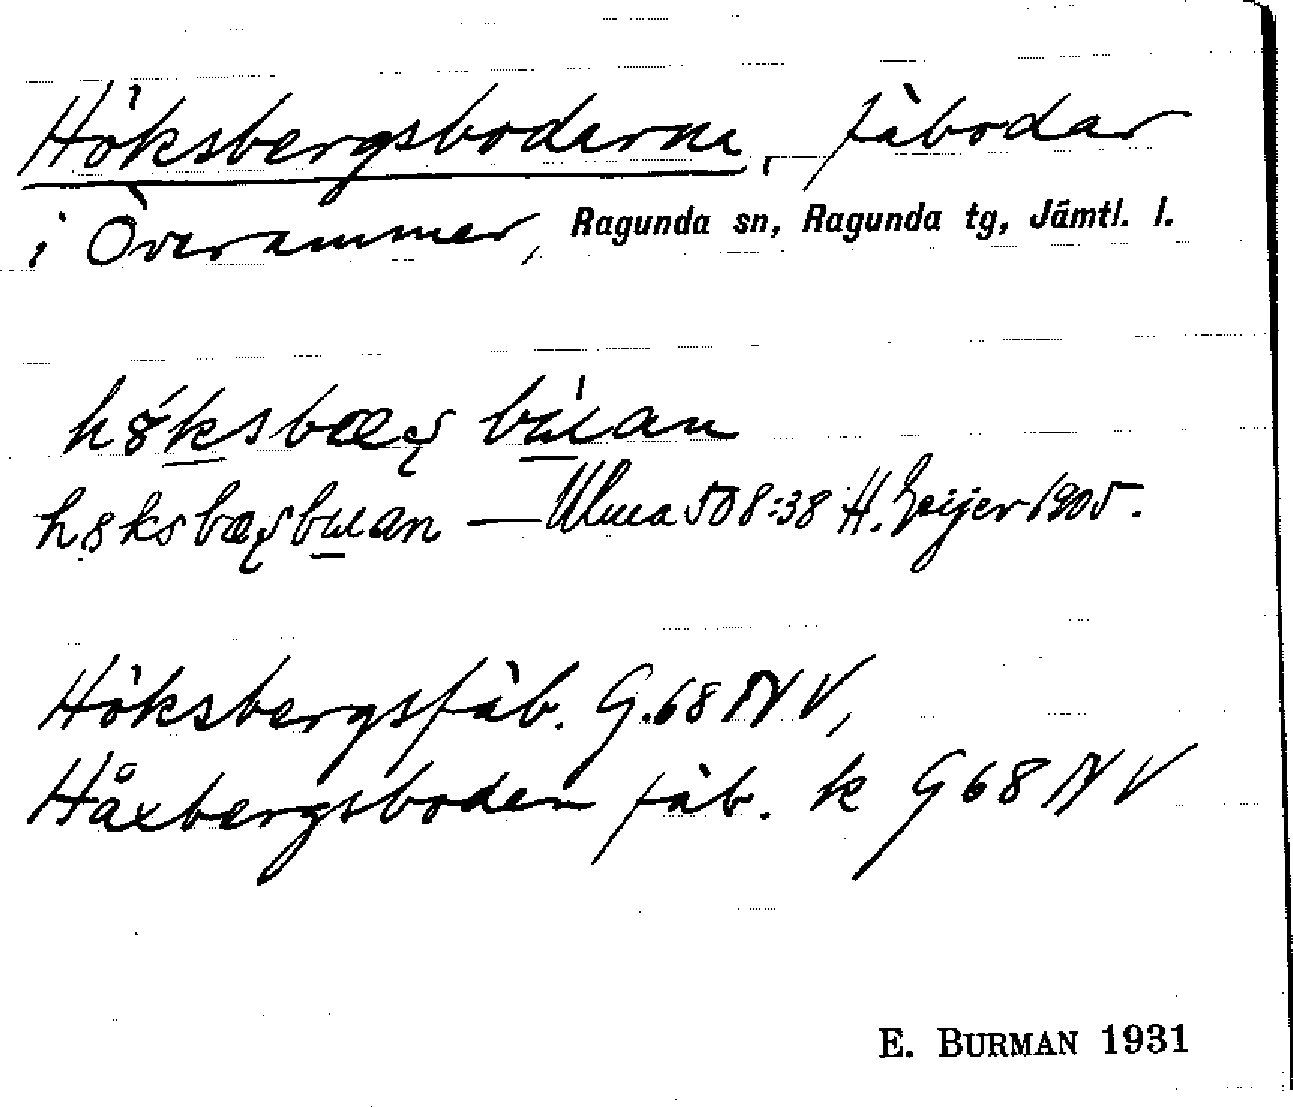 Höksbergsboderna, fäbodar
i Överammer, Ragunda sn, Ragunda tg, Jämtl. l.
— Ulma 508:38 H. Geijer 1905.
Höksbergsfäb. G.68 NV,
Håxbergsboden fäb. k G68 NV
E. BURMAN 1931